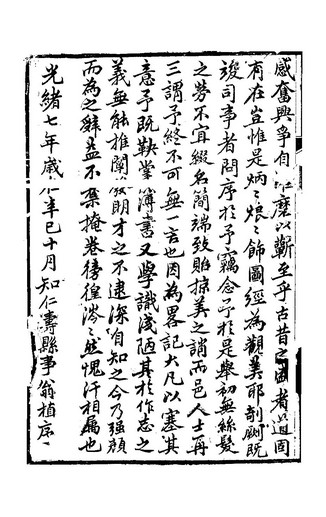 感奮興爭自 磨以蘄至乎古昔之 者道固
有在豈惟是炳〻烺〻飾圖經為觀美耶剞劂既
竣司事者問序於予竊念予於是舉初無絲髮
之勞不宜綴名簡端致貽掠美之誚而邑人士再
三謂予終不可無一言也因為畧記大凡以塞其
意予既鞅掌簿書又學識淺陋其於作志之
義無能推闡發明才之不逮深自知之今乃强顏
而為之辭益不 掩卷徬徨涔〻然愧汗相屬也
光緒七年歲 辛巳十月知仁壽縣事翁植序